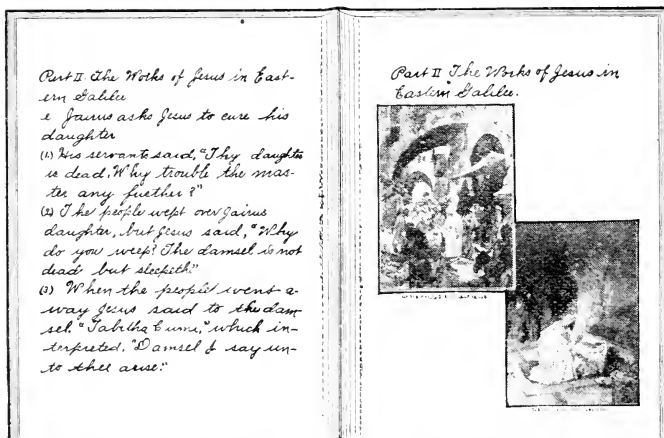 Part II. The Works of Jesus in East-
ern Galilee
e Jairus asks Jesus to cure his
daughter
(1.) His servants said, "Thy daughter
is dead. Why trouble the mas-
ter any further?"
(2) The people wept over Jairus
daughter, but Jesus said, "Why
do you weep? The damsel is not
dead but sleepeth."
(3) When the people went a-
way Jesus said to the dam-
sel "Tabitha Cumi," which in-
terpreted, "Damsel I say un-
to thee arise."
Part II The Works of Jesus in
Eastern Galilee.